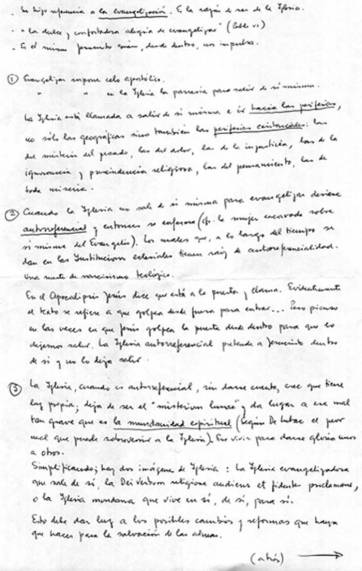 - Se hizo referencia a la evangelización. Es la razón de ser de la Iglesia.
- "La dulce y confortadora alegría de evangelizar" (Pablo VI)
- Es el mismo Jesucristo quien, desde dentro, nos impulsa.
① Evangelizar supone celo apostólico.
" " en la Iglesia la parresía para salir de sí misma.
La Iglesia está llamada a salir de sí misma e ir hacia las periferias,
no sólo las geográficas sino también las periferias existenciales: las
del misterio del pecado, las del dolor, las de la injusticia, las de la
ignorancia y prescindencia religiosa, las del pensamiento, las de
toda miseria.
② Cuando la Iglesia no sale de sí misma para evangelizar deviene
autorreferencial y entonces se enferma (cfr. la mujer encorvada sobre
sí misma del Evangelio). Los males que, a lo largo del tiempo se
dan en las Instituciones eclesiales tienen raíz de autorreferencialidad.
Una suerte de narcisismo teológico.
En el Apocalipsis Jesús dice que está a la puerta y llama. Evidentemente
el texto se refiere a que golpea desde fuera para entrar... Pero pienso
en las veces en que Jesús golpea la puerta desde dentro para que lo
dejemos salir. La Iglesia autorreferencial pretende a Jesucristo dentro
de sí y no lo deja salir.
③ La Iglesia, cuando es autorreferencial, sin darse cuenta, cree que tiene
luz propia; deja de ser el "mysterium lunae" y da lugar a ese mal
tan grave que es la mundanidad espiritual (según De Lubac el peor
mal que puede sobrevenir a la Iglesia). Ese vivir para darse gloria unos
a otros.
Simplificando; hay dos imágenes de Iglesia: la Iglesia evangelizadora
que sale de sí, la Dei Verbum religiose audiens et fidenter proclamans,
o la Iglesia mundana que vive en sí, de sí, para sí.
Esto debe dar luz a los posibles cambios y reformas que haya
que hacer para la salvación de las almas.
(atrás) →